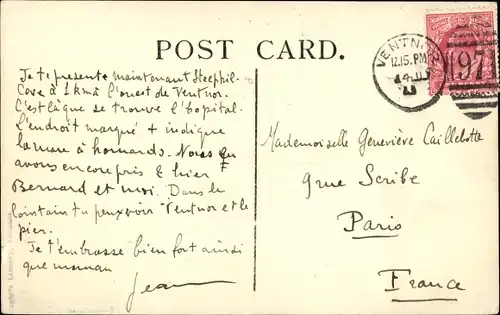 POST CARD.
VENTNOR
12.15.PM
97
Je te présente maintenant Steephil-
Cove à 1 km à l'ouest de Ventnor.
C'est là que se trouve l'hôpital.
L'endroit marqué + indique
la mare à homards. Nous en
avons encore pris 2 hier
Bernard et moi. Dans le
lointain tu peux voir Ventnor et le
pier.
Je t'embrasse bien fort ainsi
que maman
Jean
Mademoiselle Geneviève Caillebotte
9 rue Scribe
Paris
France